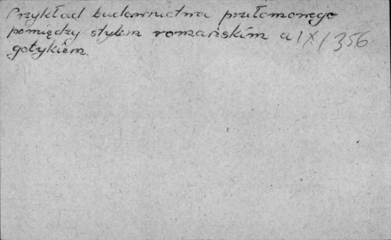 Przykład budownictwa przełomowego
pomiędzy stylem romańskim a IX/356
gotykiem.